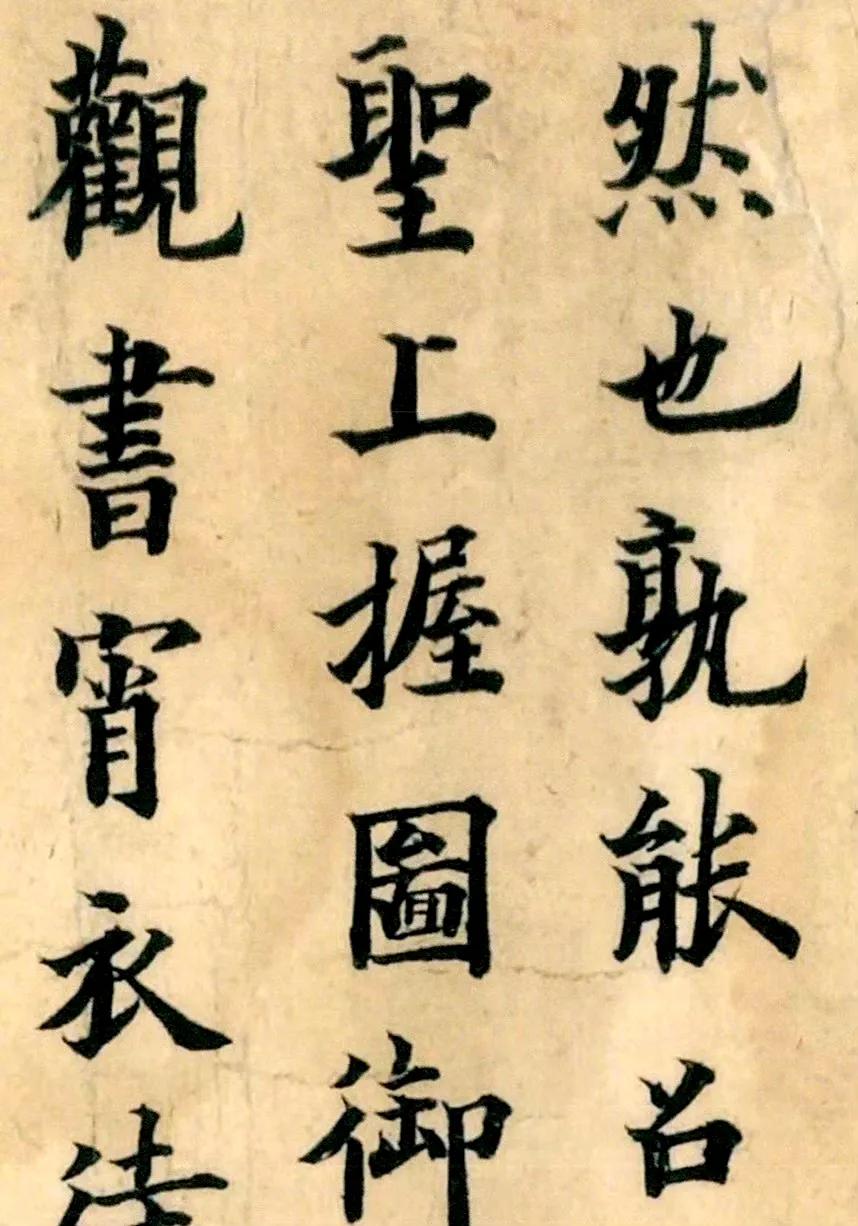 然也孰能召
聖上握圖御
觀書宵衣